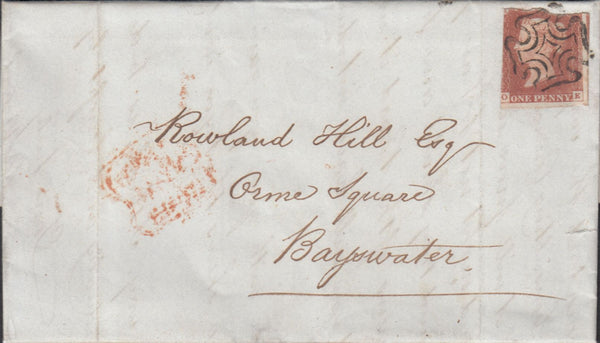 O ONE PENNY E
Rowland Hill Esq
Orme Square
Bayswater